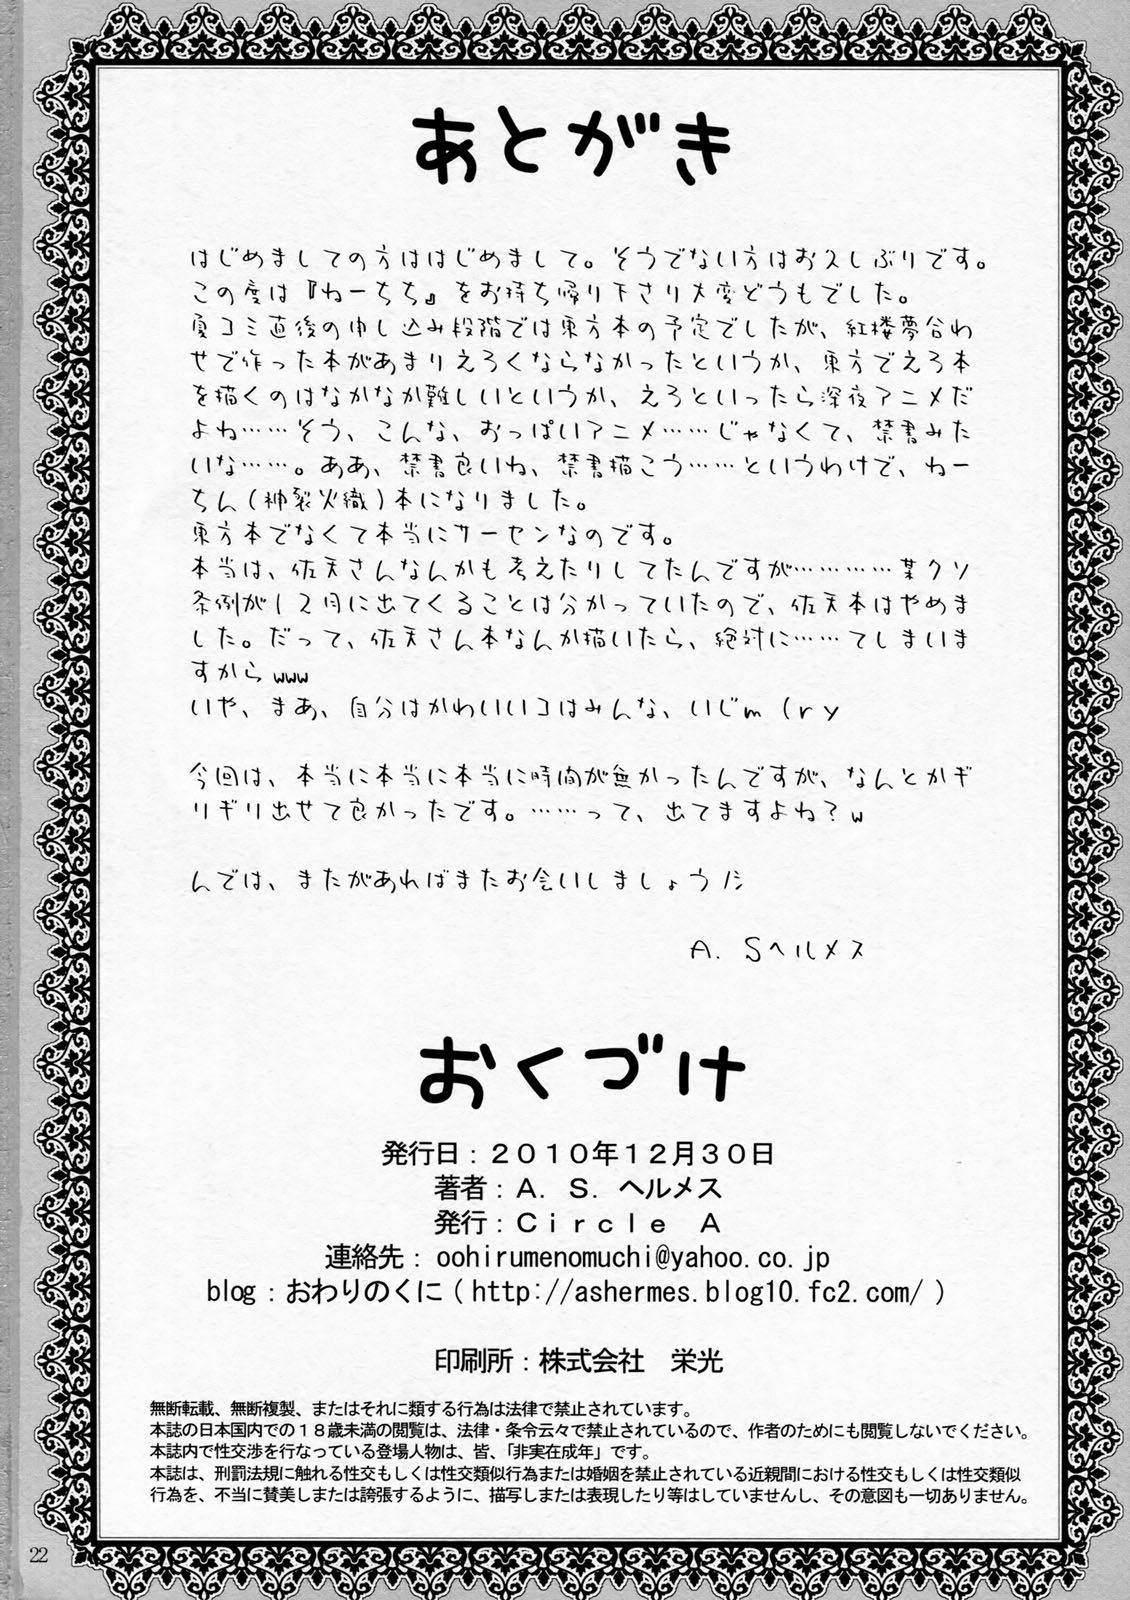 あとがき
はじめましての方ははじめまして。そうでない方はお久しぶりです。
この度は『ねーちち』をお持ち帰り下さり大変どうもでした。
夏コミ直後の申し込み段階では東方本の予定でしたが、紅楼夢合わ
せで作った本があまりえろくならなかったというか、東方でえろ本
を描くのはなかなか難しいというか、えろといったら深夜アニメだ
よね……そう、こんな、おっぱいアニメ……じゃなくて、禁書みた
いな……。ああ、禁書良いね、禁書描こう……というわけで、ねー
ちん(神裂火織)本になりました。
東方本でなくて本当にサーセンなのです。
本当は、佐天さんなんかも考えたりしてたんですが…………某クソ
条例が12月に出てくることは分かっていたので、佐天本はやめま
した。だって、佐天さん本なんか描いたら、絶対に……てしまいま
すからwww
いや、まあ、自分はかわいいコはみんな、いじm(ry
今回は、本当に本当に本当に時間が無かったんですが、なんとかギ
リギリ出せて良かったです。……って、出てますよね?w
んでは、またがあればまたお会いしましょうノシ
A.Sヘルメス
おくづけ
発行日：2010年12月30日
著者：A．S．ヘルメス
発行：Circle A
連絡先：oohirumenomuchi@yahoo.co.jp
blog：おわりのくに(http://ashermes.blog10.fc2.com/)
印刷所：株式会社 栄光
無断転載、無断複製、またはそれに類する行為は法律で禁止されています。
本誌の日本国内での18歳未満の閲覧は、法律・条令云々で禁止されているので、作者のためにも閲覧しないでください。
本誌内で性交渉を行なっている登場人物は、皆、「非実在成年」です。
本誌は、刑罰法規に触れる性交もしくは性交類似行為または婚姻を禁止されている近親間における性交もしくは性交類似
行為を、不当に賛美しまたは誇張するように、描写しまたは表現したり等はしていませんし、その意図も一切ありません。
22